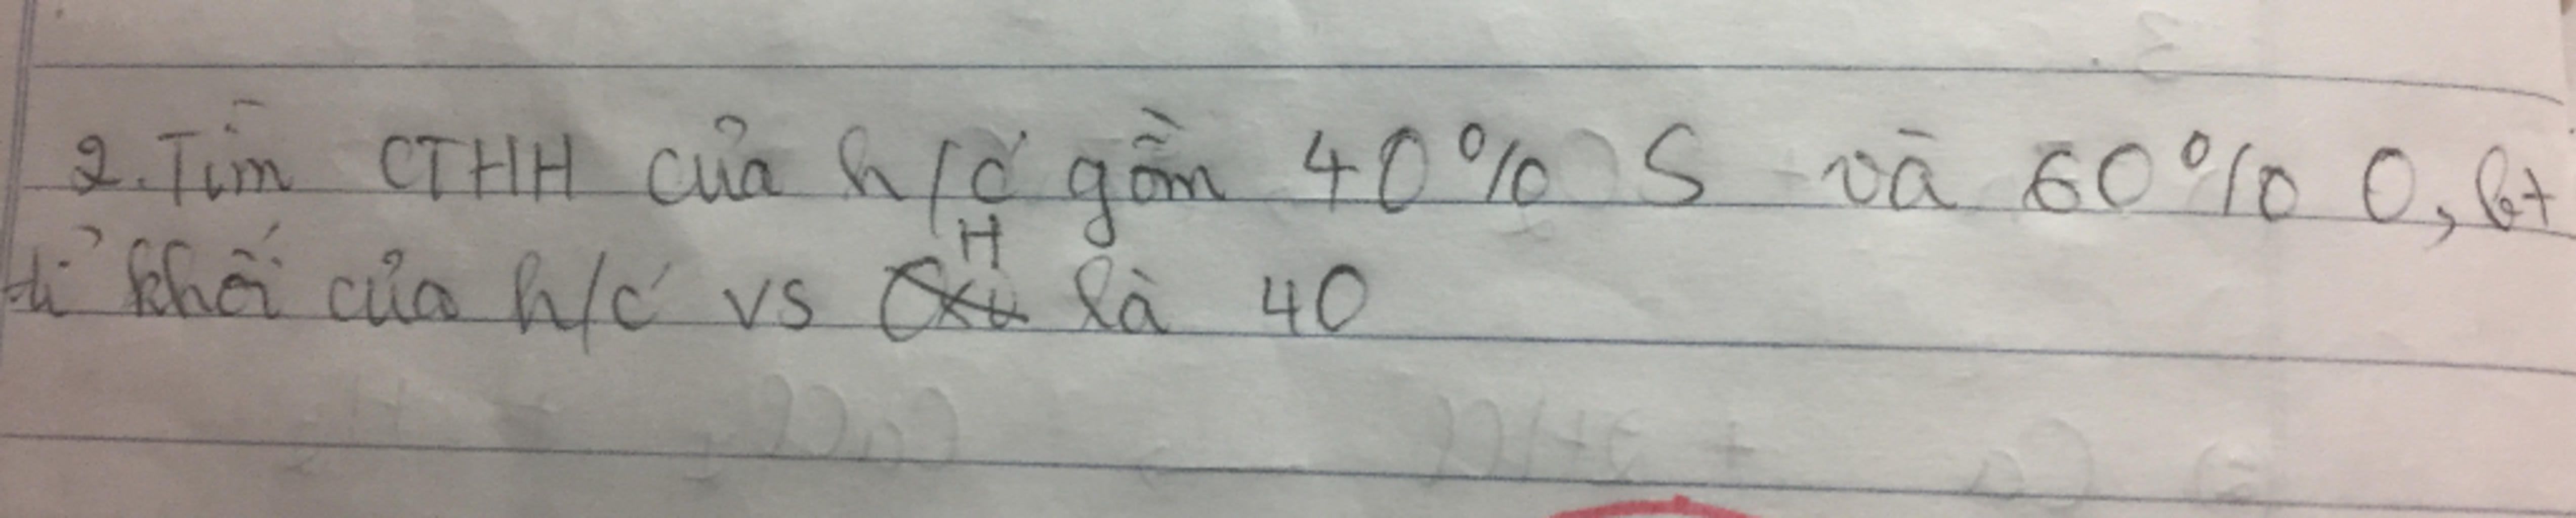 2. Tìm CTHH của h/c gồm 40% S và 60% O, bt
tỉ khối của h/c vs H là 40